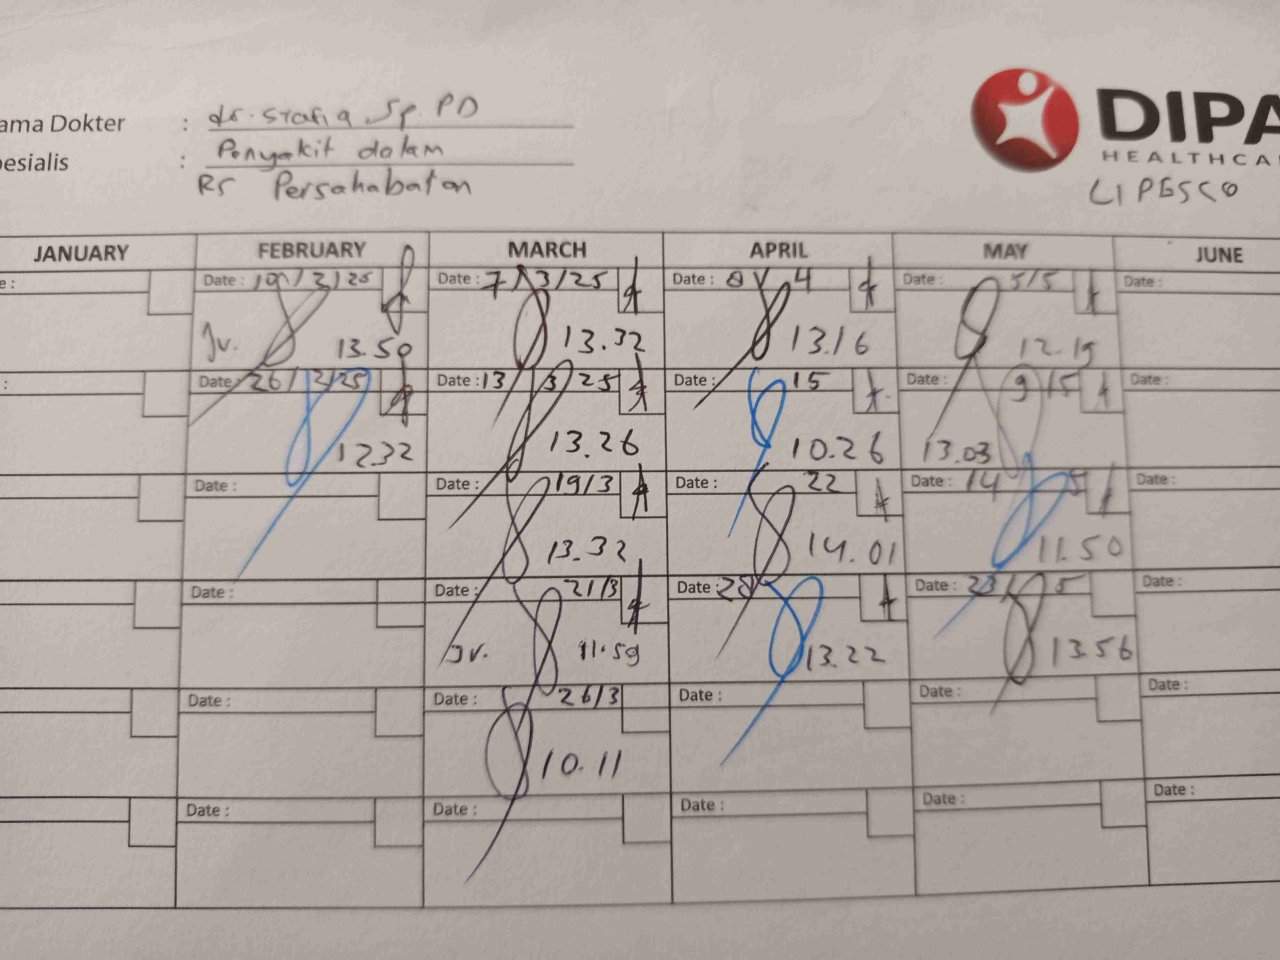 ama Dokter : dr. Syafiq Sp. PD
esialis : Penyakit dalam
RS Persahabatan
DIPA
HEALTHCA
LIPESCO
JANUARY FEBRUARY MARCH APRIL MAY JUNE
e : Date : 10/2/25 Date : 7/3/25 Date : 8/4 Date : 5/5 Date :
Jv. 13.50 13.32 13.16 12.19
: Date : 26/2/25 Date : 13/3/25 Date : 15 Date : 9/5 Date :
12.32 13.26 10.26 13.03
Date : Date : 19/3 Date : 22 Date : 14/5 Date :
13.32 14.01 11.50
Date : Date : 21/3 Date : 28 Date : 23/5 Date :
Jv. 11.59 13.22 13.56
Date : Date : 26/3 Date : Date : Date :
10.11
Date : Date : Date : Date : Date :